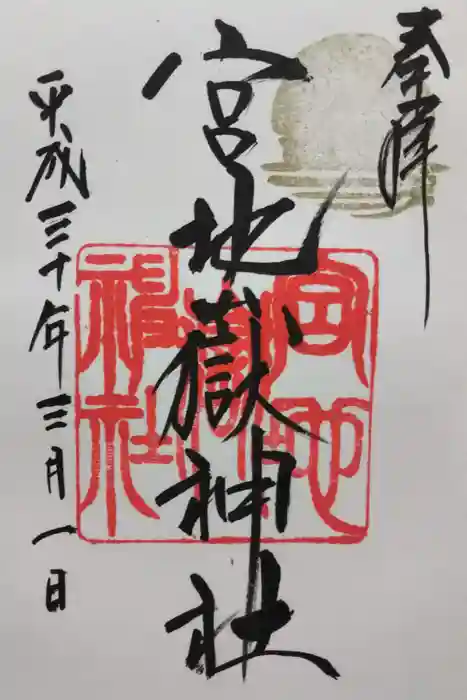 奉拝
宮地嶽神社
宮地嶽神社
平成三十年三月一日